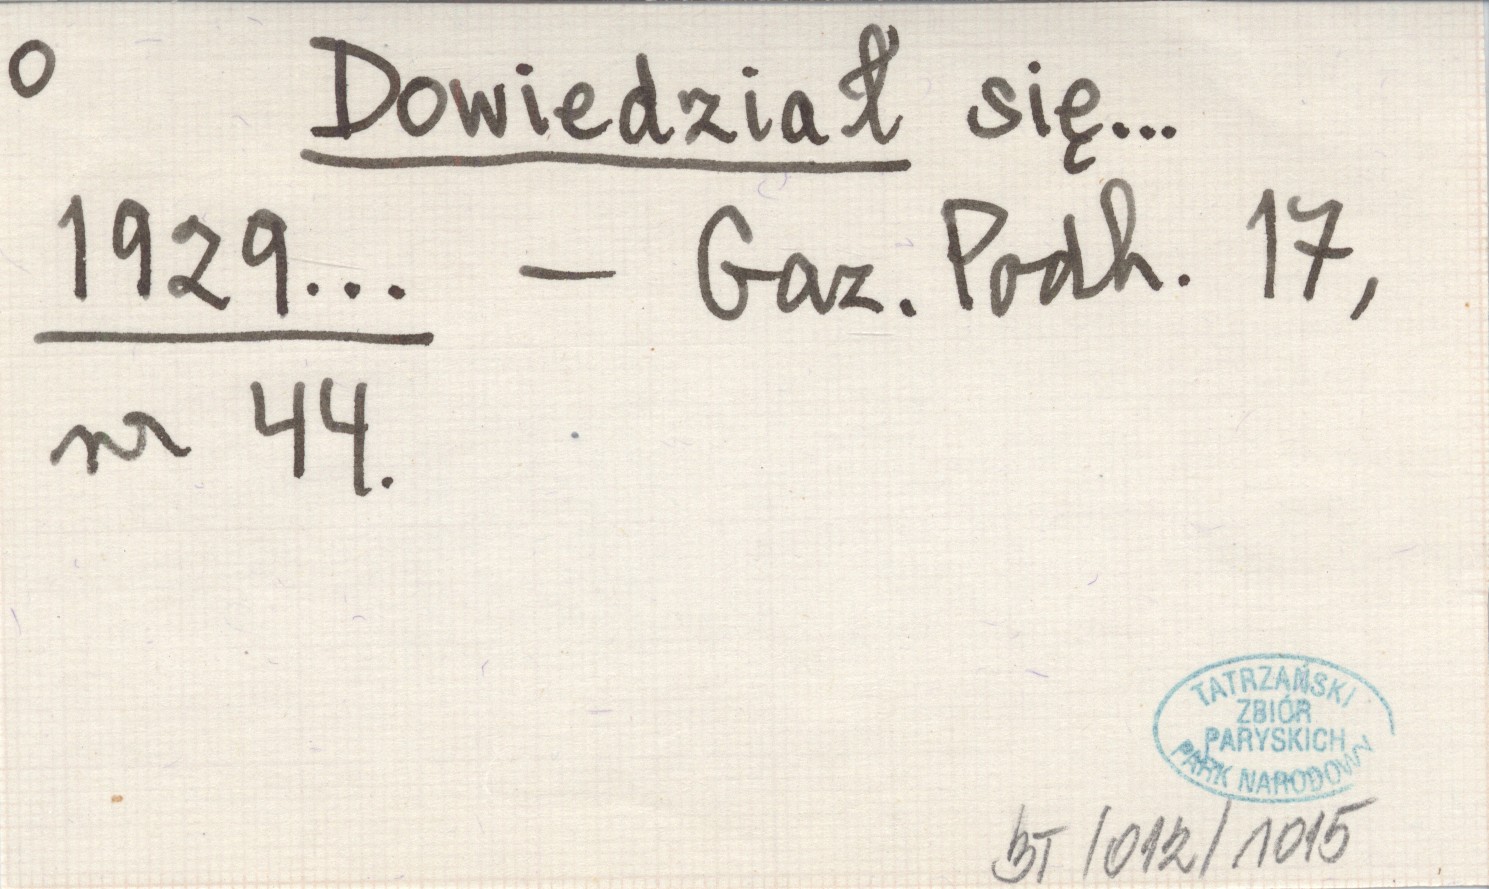 o Dowiedział się...
1929... – Gaz. Podh. 17,
nr 44.
TATRZAŃSKI
ZBIÓR
PARYSKICH
PARK NARODOWY
BT/012/1015